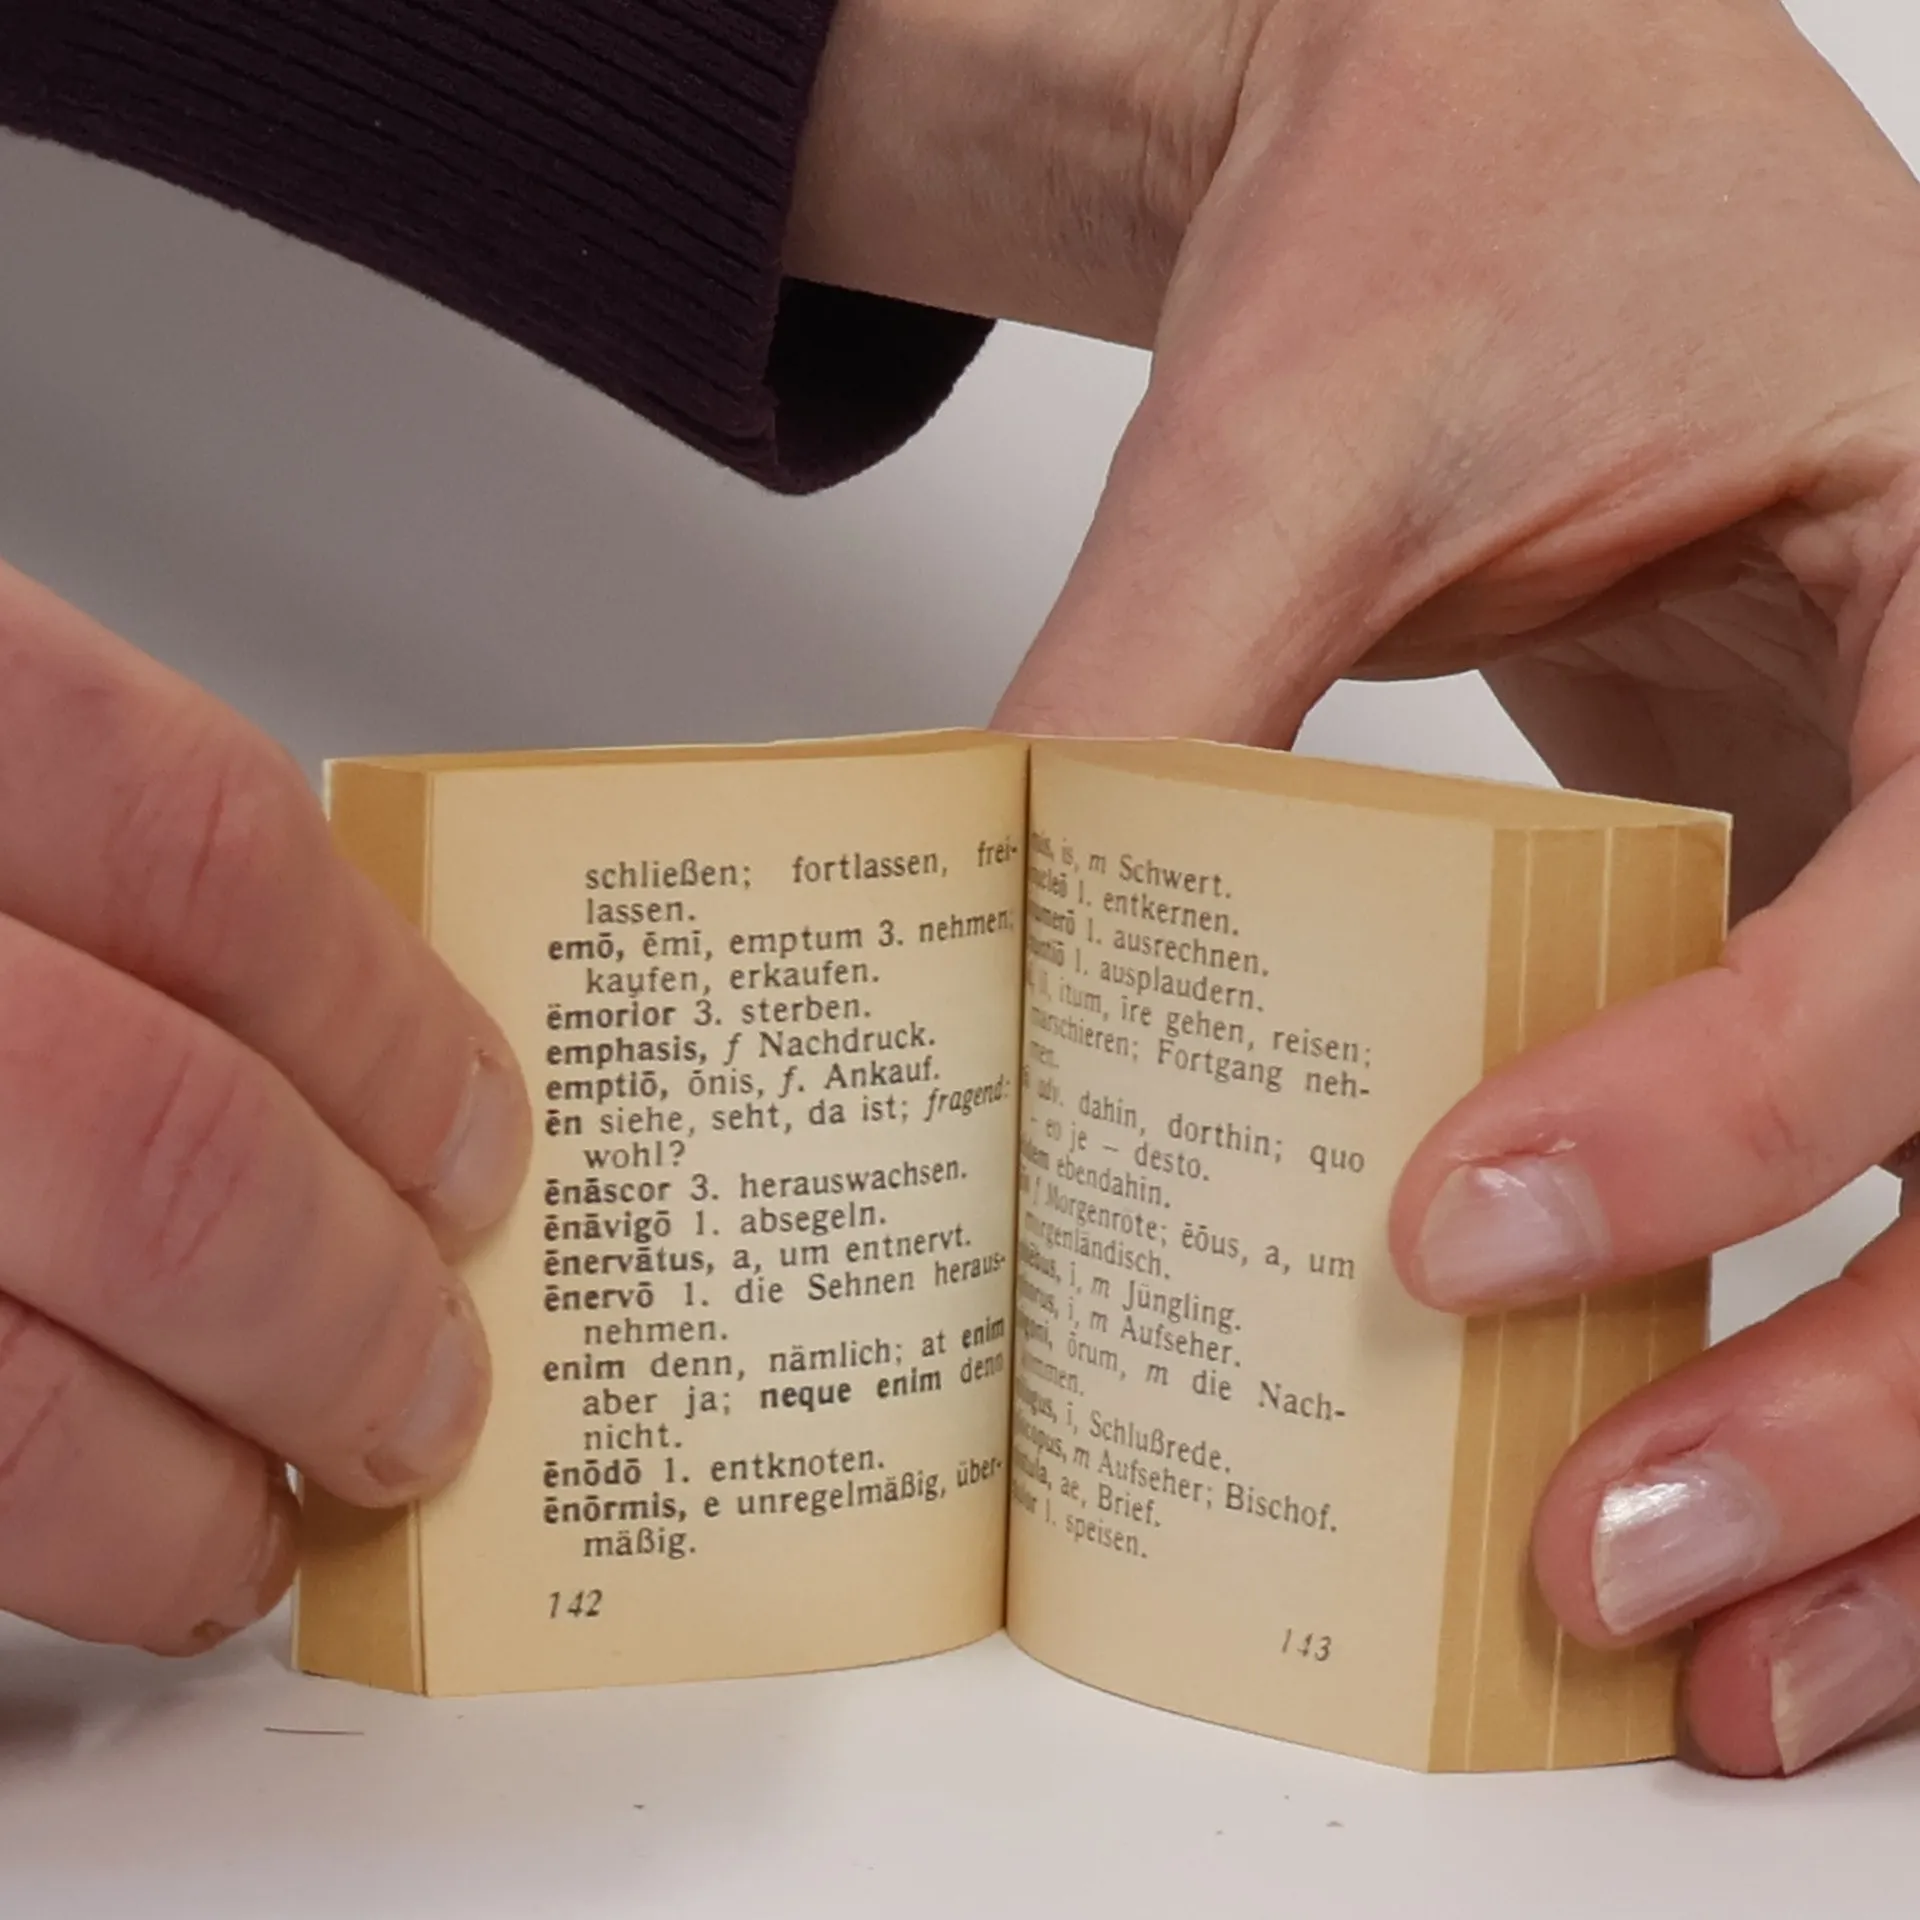 schließen; fortlassen, frei-
lassen.
emō, ēmī, emptum 3. nehmen;
kaufen, erkaufen.
ēmorior 3. sterben.
emphasis, f Nachdruck.
emptiō, ōnis, f. Ankauf.
ēn siehe, seht, da ist; fragend:
wohl?
ēnāscor 3. herauswachsen.
ēnāvigō 1. absegeln.
ēnervātus, a, um entnervt.
ēnervō 1. die Sehnen heraus-
nehmen.
enim denn, nämlich; at enim
aber ja; neque enim denn
nicht.
ēnōdō 1. entknoten.
ēnōrmis, e unregelmäßig, über-
mäßig.
142
is, m Schwert.
1. entkernen.
1. ausrechnen.
1. ausplaudern.
itum, īre gehen, reisen;
marschieren; Fortgang neh-
men.
adv. dahin, dorthin; quo
– eo je – desto.
ebendahin.
f Morgenröte; ēōus, a, um
morgenländisch.
i, m Jüngling.
i, m Aufseher.
ōrum, m die Nach-
kommen.
i, Schlußrede.
m Aufseher; Bischof.
ae, Brief.
1. speisen.
143